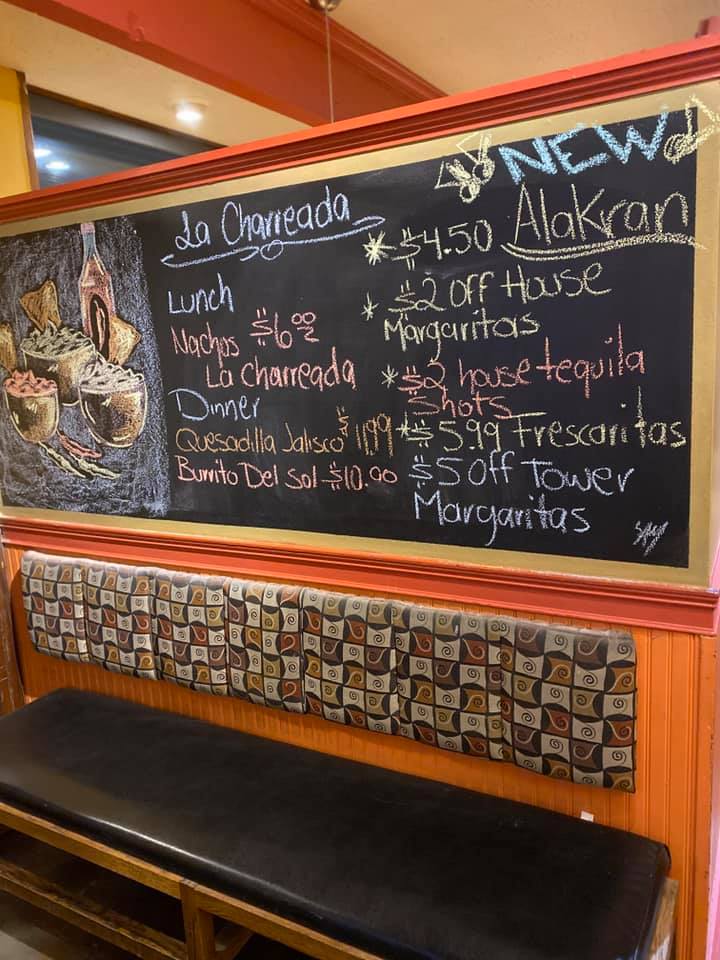 La Charreada
Lunch
Nachos $6.00
La Charreada
Dinner
Quesadilla Jalisco $11.99
Burrito Del Sol $10.90
NEW
* $4.50 Alakran
* $2 Off House
Margaritas
* $2 house tequila
Shots
* $5.99 Frescaritas
$5 Off Tower
Margaritas